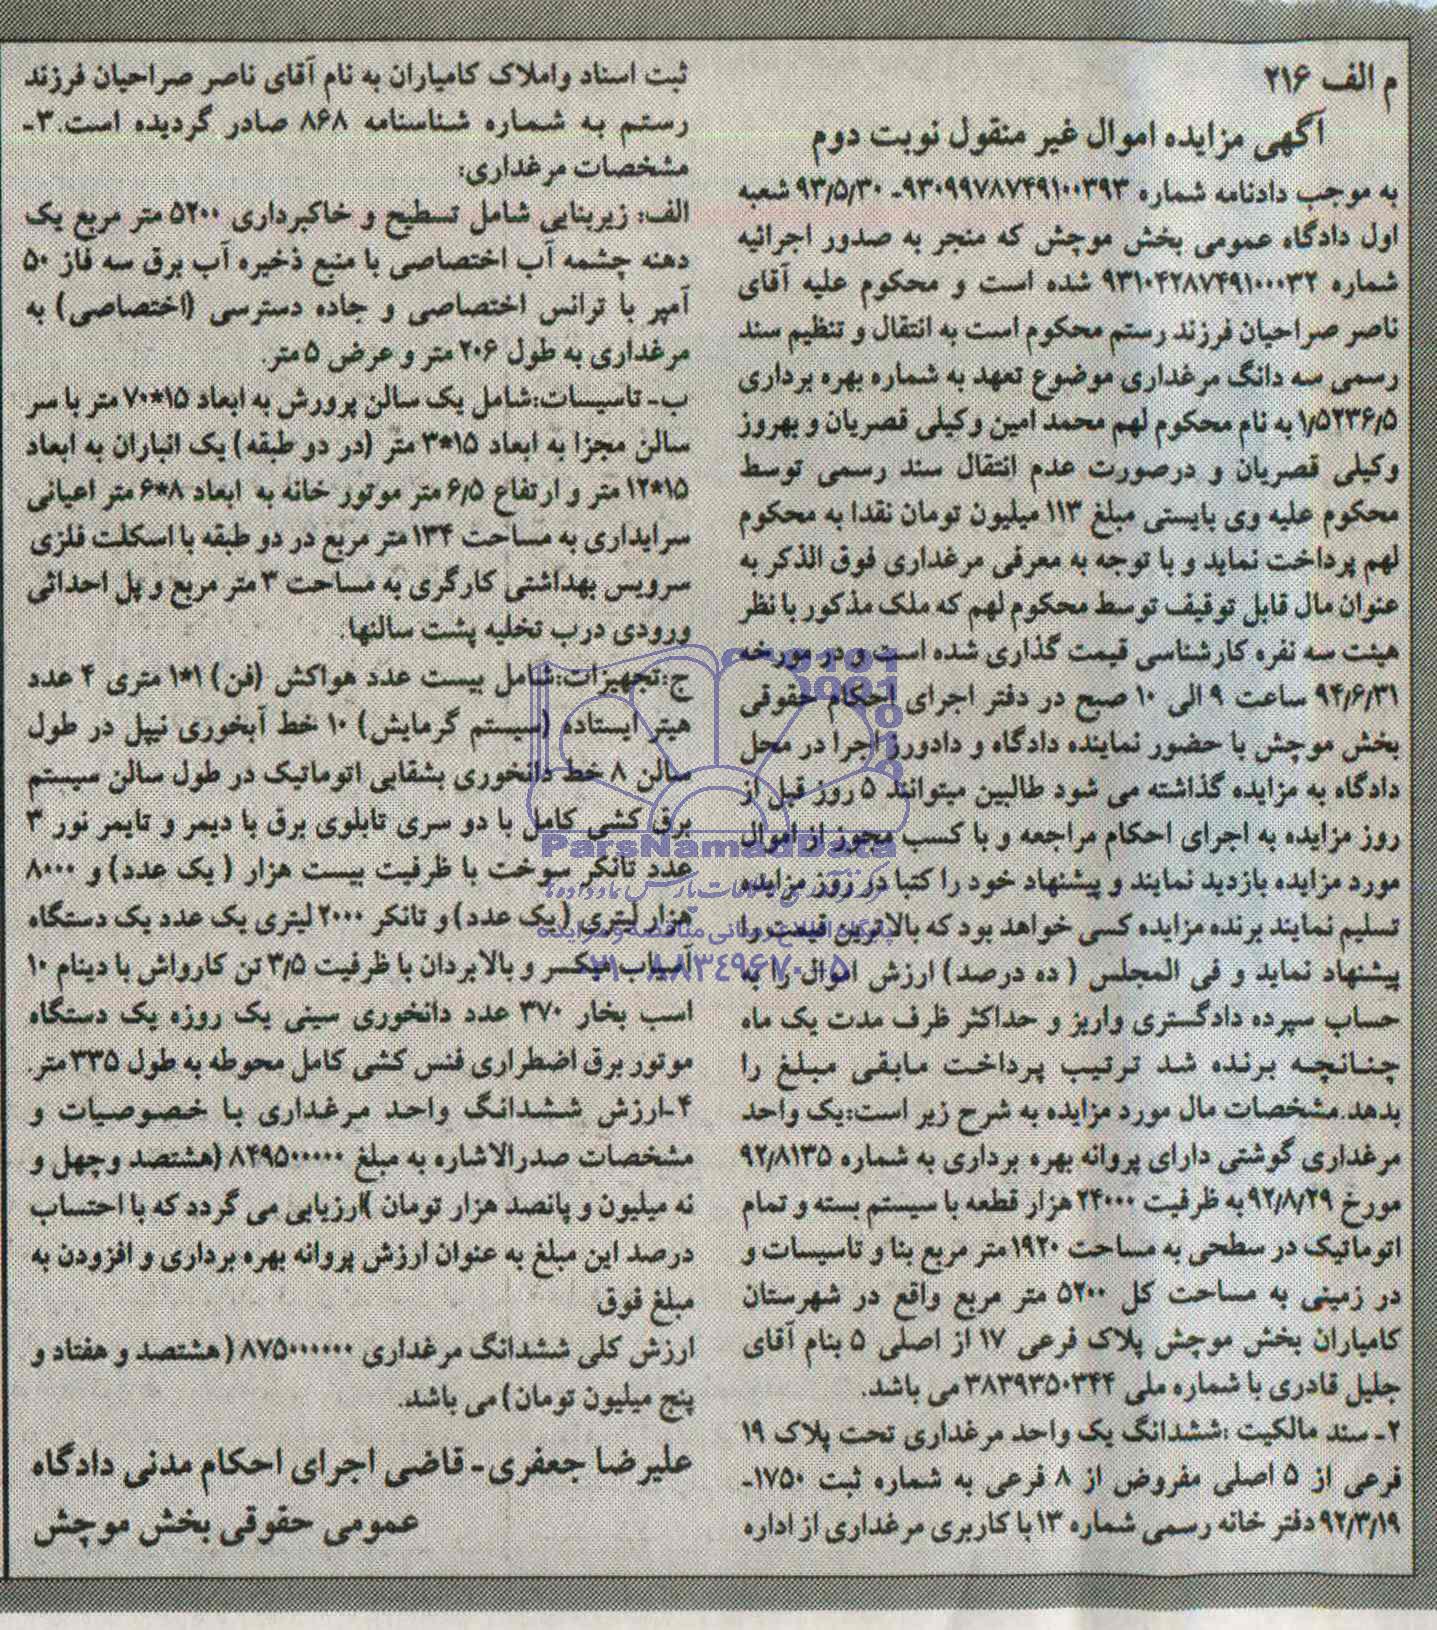 م الف ۲۱۶
آگهی مزایده اموال غیر منقول نوبت دوم
به موجب دادنامه شماره ۹۳۰۹۹۷۸۷۴۹۱۰۰۳۹۳ـ ۹۳/۵/۳۰ شعبه
اول دادگاه عمومی بخش موچش که منجر به صدور اجرائیه
شماره ۹۳۱۰۴۲۸۷۴۹۱۰۰۰۳۲ شده است و محکوم علیه آقای
ناصر صراحیان فرزند رستم محکوم است به انتقال و تنظیم سند
رسمی سه دانگ مرغداری موضوع تعهد به شماره بهره برداری
۱/۵۲۳۶/۵ به نام محکوم لهم محمد امین وکیلی قصریان و بهروز
وکیلی قصریان و درصورت عدم انتقال سند رسمی توسط
محکوم علیه وی بایستی مبلغ ۱۱۳ میلیون تومان نقدا به محکوم
لهم پرداخت نماید و با توجه به معرفی مرغداری فوق الذکر به
عنوان مال قابل توقیف توسط محکوم لهم که ملک مذکور با نظر
هیئت سه نفره کارشناسی قیمت گذاری شده است و در مورخه
۹۴/۶/۳۱ ساعت ۹ الی ۱۰ صبح در دفتر اجرای احکام حقوقی
بخش موچش با حضور نماینده دادگاه و دادورز اجرا در محل
دادگاه به مزایده گذاشته می شود طالبین میتوانند ۵ روز قبل از
روز مزایده به اجرای احکام مراجعه و با کسب مجوز از اموال
مورد مزایده بازدید نمایند و پیشنهاد خود را کتبا در روز مزایده
تسلیم نمایند برنده مزایده کسی خواهد بود که بالاترین قیمت را
پیشنهاد نماید و فی المجلس ( ده درصد) ارزش اموال را به
حساب سپرده دادگستری واریز و حداکثر ظرف مدت یک ماه
چنانچه برنده شد ترتیب پرداخت مابقی مبلغ را
بدهد.مشخصات مال مورد مزایده به شرح زیر است:یک واحد
مرغداری گوشتی دارای پروانه بهره برداری به شماره ۹۲/۸۱۳۵
مورخ ۹۲/۸/۲۹ به ظرفیت ۲۴۰۰۰ هزار قطعه با سیستم بسته و تمام
اتوماتیک در سطحی به مساحت ۱۹۲۰ متر مربع بنا و تاسیسات و
در زمینی به مساحت کل ۵۲۰۰ متر مربع واقع در شهرستان
کامیاران بخش موچش پلاک فرعی ۱۷ از اصلی ۵ بنام آقای
جلیل قادری با شماره ملی ۳۸۳۹۳۵۰۳۴۴ می باشد.
۲ـ سند مالکیت :ششدانگ یک واحد مرغداری تحت پلاک ۱۹
فرعی از ۵ اصلی مفروض از ۸ فرعی به شماره ثبت ۱۷۵۰ـ
۹۲/۳/۱۹ دفتر خانه رسمی شماره ۱۳ با کاربری مرغداری از اداره
ثبت اسناد واملاک کامیاران به نام آقای ناصر صراحیان فرزند
رستم به شماره شناسنامه ۸۶۸ صادر گردیده است.۳ـ
مشخصات مرغداری:
الف: زیربنایی شامل تسطیح و خاکبرداری ۵۲۰۰ متر مربع یک
دهنه چشمه آب اختصاصی با منبع ذخیره آب برق سه فاز ۵۰
آمپر با ترانس اختصاصی و جاده دسترسی (اختصاصی) به
مرغداری به طول ۲۰۶ متر و عرض ۵ متر.
ب ـ تاسیسات:شامل یک سالن پرورش به ابعاد ۱۵*۷۰ متر با سر
سالن مجزا به ابعاد ۱۵*۳ متر (در دو طبقه) یک انباران به ابعاد
۱۵*۱۲ متر و ارتفاع ۶/۵ متر موتور خانه به ابعاد ۸*۶ متر اعیانی
سرایداری به مساحت ۱۳۴ متر مربع در دو طبقه با اسکلت فلزی
سرویس بهداشتی کارگری به مساحت ۳ متر مربع و پل احداثی
ورودی درب تخلیه پشت سالنها.
ج:تجهیزات:شامل بیست عدد هواکش (فن) ۱*۱ متری ۴ عدد
هیتر ایستاده (سیستم گرمایش) ۱۰ خط آبخوری نیپل در طول
سالن ۸ خط دانخوری بشقابی اتوماتیک در طول سالن سیستم
برق کشی کامل با دو سری تابلوی برق با دیمر و تایمر نور ۳
عدد تانکر سوخت با ظرفیت بیست هزار ( یک عدد) و ۸۰۰۰
هزار لیتری ( یک عدد) و تانکر ۲۰۰۰ لیتری یک عدد یک دستگاه
آسیاب میکسر و بالابردان با ظرفیت ۳/۵ تن کارواش با دینام ۱۰
اسب بخار ۳۷۰ عدد دانخوری سینی یک روزه یک دستگاه
موتور برق اضطراری فنس کشی کامل محوطه به طول ۳۳۵ متر.
۴ـارزش ششدانگ واحد مرغداری با خصوصیات و
مشخصات صدرالاشاره به مبلغ ۸۴۹۵۰۰۰۰۰ (هشتصد وچهل و
نه میلیون و پانصد هزار تومان )ارزیابی می گردد که با احتساب
درصد این مبلغ به عنوان ارزش پروانه بهره برداری و افزودن به
مبلغ فوق
ارزش کلی ششدانگ مرغداری ۸۷۵۰۰۰۰۰۰ ( هشتصد و هفتاد و
پنج میلیون تومان) می باشد.
علیرضا جعفری ـ قاضی اجرای احکام مدنی دادگاه
عمومی حقوقی بخش موچش
ParsNamadData
پایگاه اطلاع رسانی مناقصه و مزایده
۰۲۱-۸۸۳۴۹۶۷۰-۵